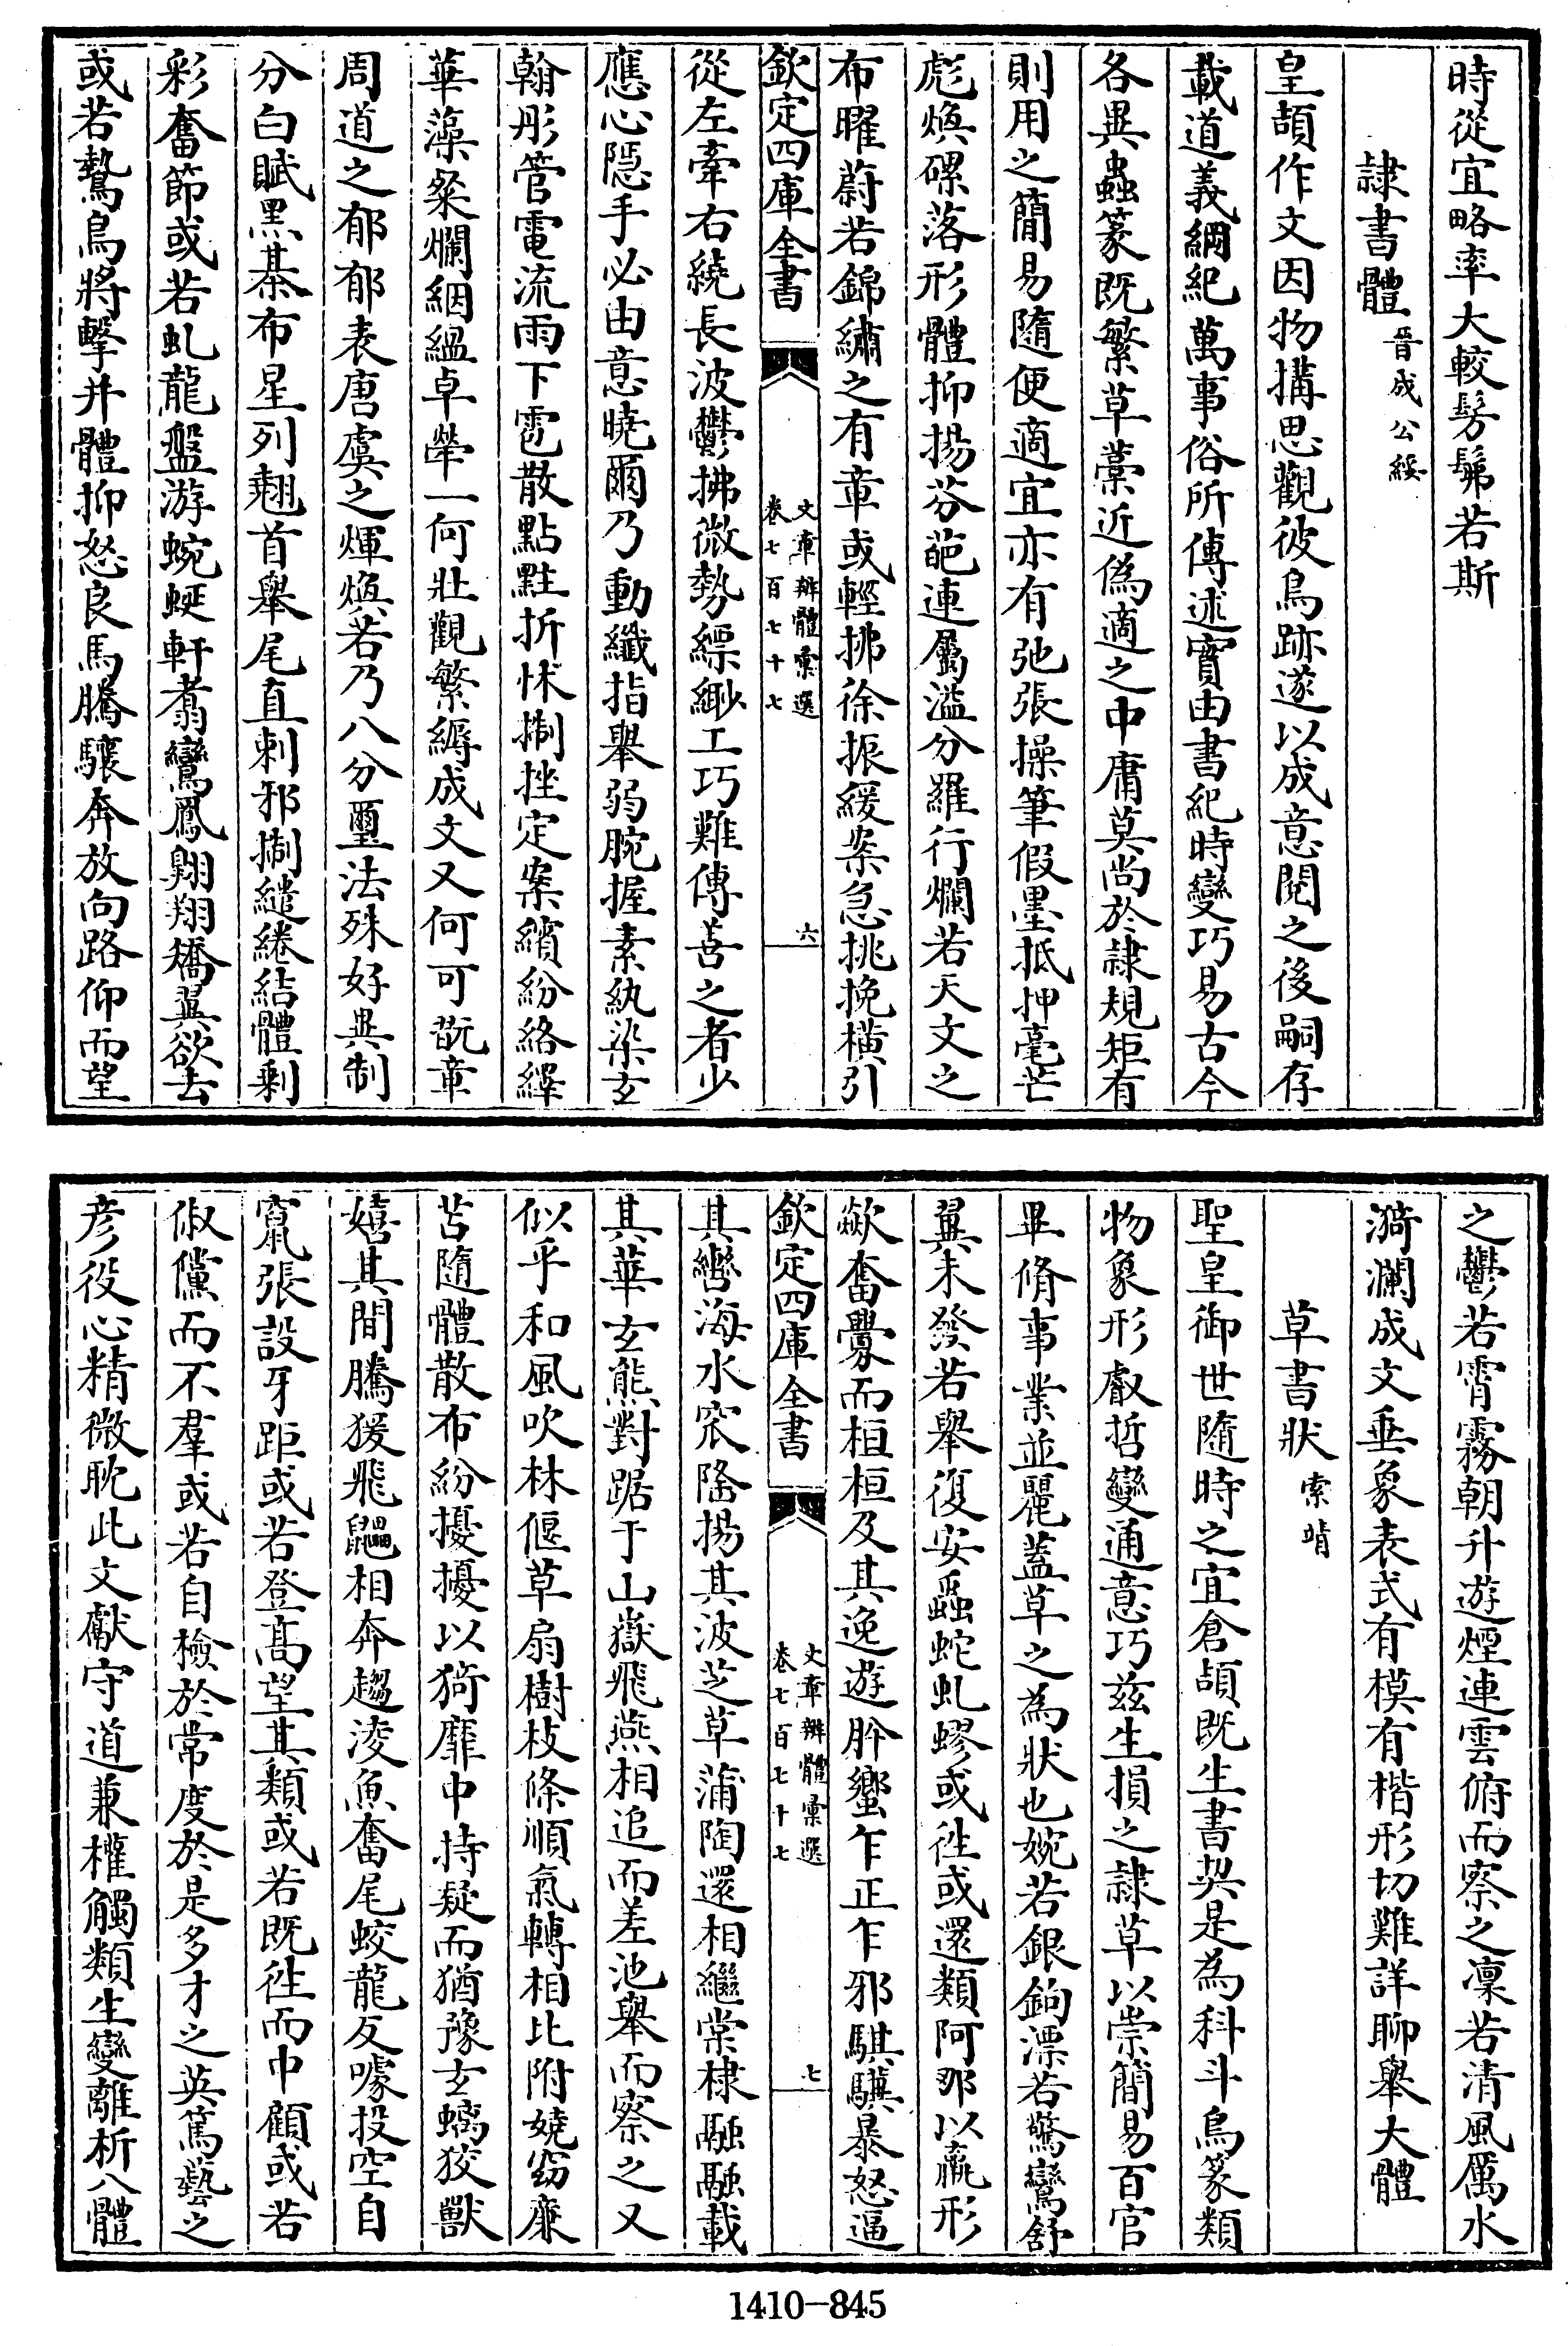 時從宜略率大較髣髴若斯
隷書體晉成公綏
皇頡作文因物搆思觀彼鳥跡遂以成意閱之後嗣存
載道義綱紀萬事俗所傳述實由書紀時變巧易古今
各異蟲篆既繁草藁近偽適之中庸莫尚於隷規矩有
則用之簡易隨便適宜亦有弛張操筆假墨抵押毫芒
彪煥磥落形體抑揚芬葩連屬溢分羅行爛若天文之
布曜蔚若錦繡之有章或輕拂徐振緩案急挑挽橫引
欽定四庫全書
文章辨體彙選
卷七百七十七
六
從左牽右繞長波鬱拂微勢縹緲工巧難傳善之者少
應心隱手必由意曉爾乃動纖指舉弱腕握素紈染玄
翰彤管電流雨下雹散點䵠折怵掣挫定案繽紛絡繹
華藻粲爛絪縕卓犖一何壯觀繁縟成文又何可翫章
周道之郁郁表唐虞之輝煥若乃八分璽法殊好異制
分白賦黑棊布星列翹首舉尾直刺邪掣繾綣結體剽
彩奮節或若虬龍盤游蜿蜒軒翥鸞鳳翱翔矯翼欲去
或若鷙鳥將擊并體抑怒良馬騰驤奔放向路仰而望
之鬱若霄霧朝升遊煙連雲俯而察之凛若清風厲水
漪瀾成文垂象表式有模有楷形切難詳聊舉大體
草書狀索靖
聖皇御世隨時之宜倉頡既生書契是為科斗鳥篆類
物象形叡哲變通意巧茲生損之隷草以崇簡易百官
畢脩事業並麗蓋草之為狀也婉若銀鉤漂若驚鸞舒
翼未發若舉復安蟊蛇虬蟉或徃或還類阿那以羸形
歘奮釁而桓桓及其逸遊肸蠁乍正乍邪騏驥暴怒逼
欽定四庫全書
文章辨體彙選
卷七百七十七
七
其轡海水窊隆揚其波芝草蒲陶還相繼棠棣融融載
其華玄熊對踞于山嶽飛燕相追而差池舉而察之又
似乎和風吹林偃草扇樹枝條順氣轉相比附嬈窈廉
苫隨體散布紛擾擾以猗靡中持疑而猶豫玄螭狡獸
嬉其間騰猨飛鼺相奔趨淩魚奮尾蛟龍反嚎投空自
竄張設牙距或若登高望其類或若既徃而中顧或若
俶儻而不羣或若自檢於常度於是多才之英篤藝之
彦役心精微耽此文獻守道兼權觸類生變離析八體
1410-845